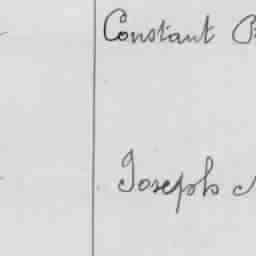 Constant
Joseph